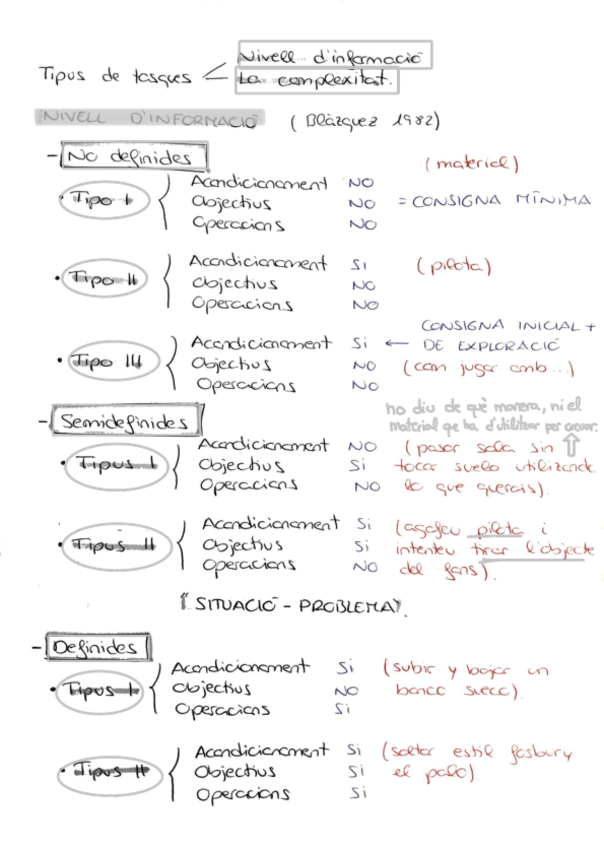 Nivell d'informació
Tipus de tasques < La complexitat.
NIVELL D'INFORMACIÓ (Blàzquez 1982)
- No definides
(material)
· Tipo I { Acondicionament NO
Objectius NO = CONSIGNA MÍNIMA
Operacions NO
• Tipo II { Acondicionament SI (pilota)
Objectius NO
Operacions NO
CONSIGNA INICIAL +
• Tipo III { Acondicionament Si ← DE EXPLORACIÓ
Objectius NO (com jugar amb...)
Operacions NO
no diu de què manera, ni el
- Semidefinides material que ha d'utilitzar per creuar.
• Tipus I { Acondicionament NO (pasar sala sin
Objectius Si tocar suelo utilizando
Operacions NO lo que querais).
• Tipus II { Acondicionament Si (agafeu pilota i
Objectius Si intenteu tirar l'objecte
Operacions NO del fons).
"SITUACIÓ - PROBLEMA".
- Definides
• Tipus I { Acondicionament Si (subir y bajar un
Objectius NO banco sueco).
Operacions Si
• Tipus II { Acondicionament Si (saltar estil fosbury
Objectius Si el palo).
Operacions Si